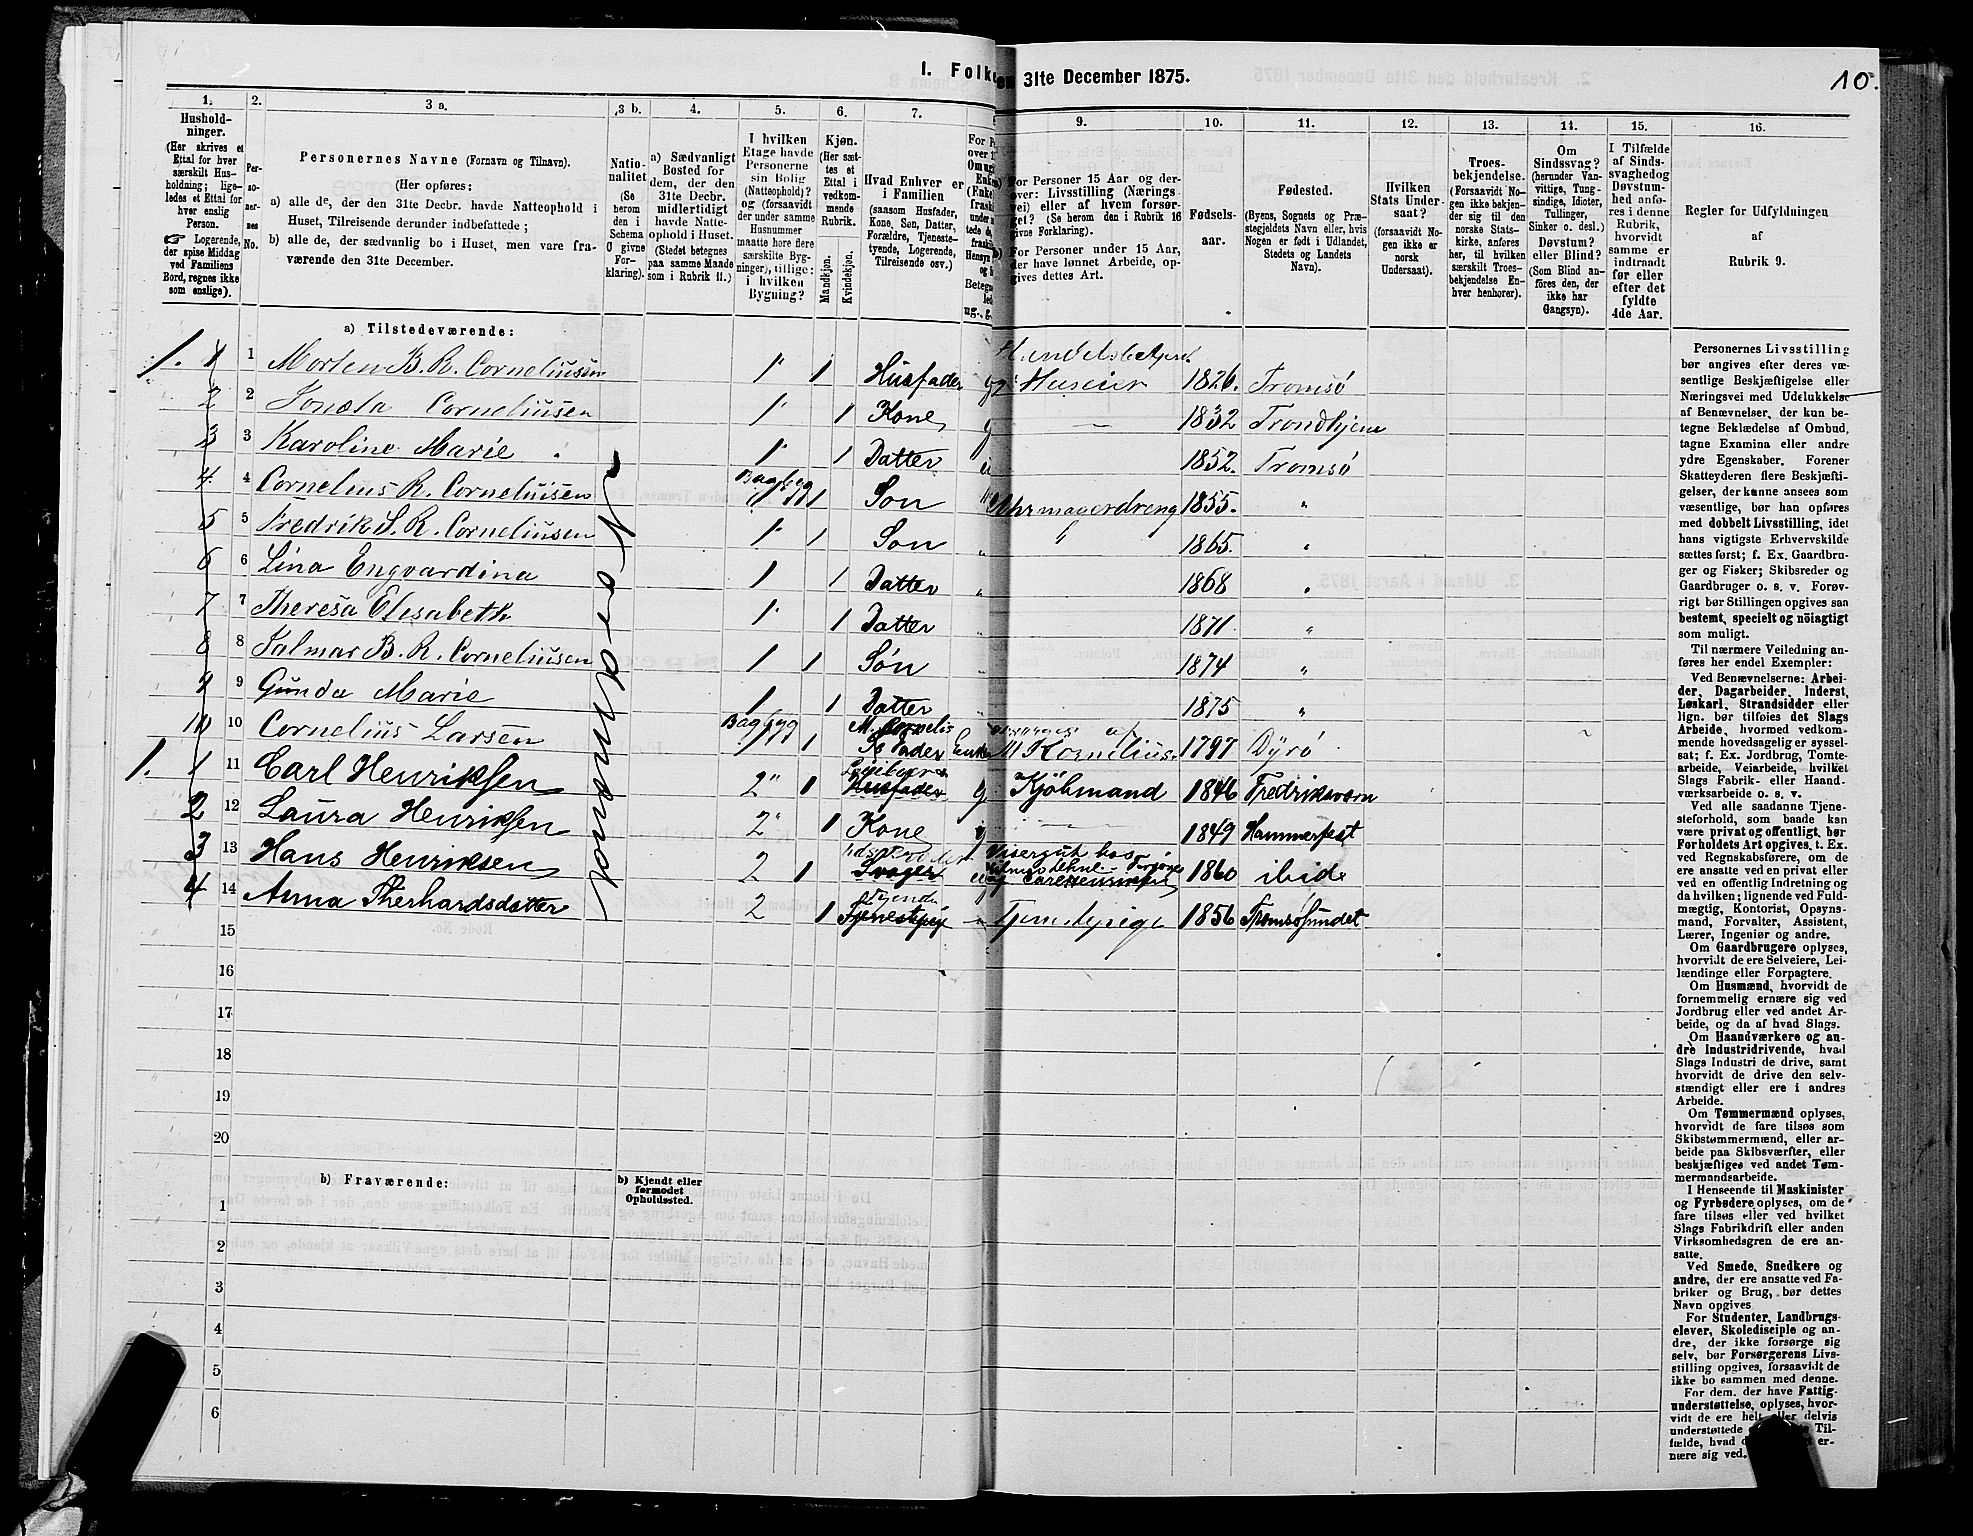 I. Folke
en 31te December 1875.
10.
1.
Hushold-
ninger.
(Her skrives et
Ettal for hver
særskilt Hus-
holdning; lige-
ledes et Ettal for
hver enslig
Person.
Logerende,
der spise Middag
ved Familiens
Bord, regnes ikke
som enslige).
2.
Per-
so-
ner-
nes
No.
3 a.
Personernes Navne (Fornavn og Tilnavn).
(Her opføres:
a) alle de, der den 31te Decbr. havde Natteophold i
Huset, Tilreisende derunder indbefattede;
b) alle de, der sædvanlig bo i Huset, men vare fra-
værende den 31te December.
3 b.
Natio-
nalitet
(Se
herom
den i
Schema
O givne
For-
klaring).
4.
a) Sædvanligt
Bosted for
dem, der den
31te Decbr.
midlertidigt
havde Natte-
ophold i Huset.
(Stedet betegnes
paa samme Maade
som i Rubrik 11.)
5.
I hvilken
Etage havde
Personerne
sin Bolig
(Natteophold)?
og (forsaavidt
der under samme
Husnummer
maatte høre flere
særskilte Byg-
ninger), tillige:
i hvilken
Bygning?
6.
Kjøn.
(Her sæt-
tes et
Ettal i
vedkom-
mende
Rubrik.
Mandkjøn.
Kvindekjøn.
7.
Hvad Enhver er
i Familien
(saasom Husfader,
Kone, Søn, Datter,
Forældre, Tjeneste-
tyende, Logerende,
Tilreisende osv.)
9.
For Personer 15 Aar og der-
over: Livsstilling (Nærings
vei) eller af hvem forsør-
get? (Se herom den i Rubrik 16
givne Forklaring).
For Personer under 15 Aar,
der have lønnet Arbeide, op-
gives dettes Art.
10.
Fødsels-
aar.
11.
Fødested.
(Byens, Sognets og Præ-
stegjeldets Navn eller, hvis
Nogen er født i Udlandet,
Stedets og Landets
Navn).
12.
Hvilken
Stats Under-
saat?
(forsaavidt No-
gen ikke er
norsk
Undersaat).
13.
Troes-
bekjendelse.
(Forsaavidt No-
gen ikke bekjen-
der sig til den
norske Stats-
kirke, anføres
her, til hvilken
særskilt Troes-
bekjendelse En-
hver henhører).
14.
Om
Sindssvag?
(herunder Van-
vittige, Tung-
sindige, Idioter,
Tullinger,
Sinker o. desl.)
Døvstum?
eller Blind?
(Som Blind an-
føres den, der
ikke har
Gangsyn).
15.
I Tilfælde
af Sinds-
svaghedog
Døvstum-
hed anfø-
res i denne
Rubrik,
hvorvidt
samme er
indtraadt
før eller
efter det
fyldte
4de Aar.
16.
Regler for Udfyldningen
af
Rubrik 9.
a) Tilstedeværende:
1. 1 1 Morten B. R. Corneliusen 1 1 Husfader g Huseier 1826. Tromsø
2 2 Corneliusen 1 1 Kone g 1832 Trondhjem
3 3 Karoline Marie 1 1 Datter 1852. Tromsø
4 4 Cornelius R. Corneliusen 1 Søn Uhrmagerdreng 1855. "
5 5 Fredrik S. R. Corneliusen 1 1 Søn 1865. "
6 6 Lina Engvardina 1 1 Datter 1868 "
7 7 Theresa Elisabeth 1 1 Datter 1871. "
8 8 Jalmar B. R. Corneliusen 1 1 Søn 1874 "
9 Gunda Marie 1 1 Datter 1875 "
10 10 Cornelius Larsen 1 Fader M Kornelius. 1797 Dyrø
1. 1 11 Carl Henriksen 2 1 Husfader g Kjøbmand 1846 Fredriksværn
2 12 Laura Henriksen 2 1 Kone g 1849 Hammerfest
3 13 Hans Henriksen 2 1 Svoger Visergut hos Carl Henriksen 1860 ibide
4 14 Anna Therhardsdatter 2 1 Tjenestepige 1856 Tromsøsundet
15
16
17
18
19
20
b) Fraværende:
b) Kjendt eller
formodet
Opholdssted.
1
2
3
4
5
6
Personernes Livsstilling
bør angives efter deres væ-
sentlige Beskjæftigelse eller
Næringsvei med Udelukkelse
af Benævnelser, der kun be-
tegne Beklædelse af Ombud,
tagne Examina eller andre
ydre Egenskaber. Forener
Skatteyderen flere Beskjæfti-
gelser, der kunne ansees som
væsentlige, bør han opføres
med dobbelt Livsstilling, idet
hans vigtigste Erhvervskilde
sættes først; f. Ex. Gaardbru-
ger og Fisker; Skibsreder og
Gaardbruger o. s. v. Forøv-
rigt bør Stillingen opgives saa
bestemt, specielt og nöiagtigt
som muligt.
Til nærmere Veiledning an-
føres her endel Exempler:
Ved Benævnelserne: Arbei-
der, Dagarbeider, Inderst,
Løskarl, Strandsidder eller
lign. bør tilføies det Slags
Arbeide, hvormed vedkom-
mende hovedsagelig er syssel-
sat; f. Ex. Jordbrug, Tomte-
arbeide, Veiarbeide, hvilket
Slags Fabrik- eller Haand-
værksarbeide o. s. v.
Ved alle saadanne Tjene-
steforhold, som baade kan
være privat og offentligt, bør
Forholdets Art opgives. t. Ex.
ved Regnskabsførere, om de
ere ansatte ved en privat eller
ved en offentlig Indretning og
da hvilken; lignende ved Fuld-
mægtig, Kontorist, Opsyns-
mand, Forvalter, Assistent,
Lærer, Ingeniør og andre.
Om Gaardbrugere oplyses,
hvorvidt de ere Selveiere, Lei-
lændinge eller Forpagtere.
Om Husmænd, hvorvidt de
fornemmelig ernære sig ved
Jordbrug eller ved andet Ar-
beide, og da af hvad Slags.
Om Haandværkere og an-
dre Industridrivende, hvad
Slags Industri de drive, samt
hvorvidt de drive den selv-
stændigt eller ere i andres
Arbeide.
Om Tømmermænd oplyses,
hvorvidt de fare tilsøs som
Skibstømmermænd, eller ar-
beide paa Skibsværfter, eller
beskjæftiges ved andet Tøm-
mermandsarbeide.
I Henseende til Maskinister
og Fyrbødere oplyses, om de
fare tilsøs eller ved hvilket
Slags Fabrikdrift eller anden
Virksomhedsgren de ere an-
satte.
Ved Smede, Snedkere og
andre, der ere ansatte ved Fa-
briker og Brug, bør dettes
Navn opgives
For Studenter, Landbrugs-
elever, Skoledisciple og an-
dre, der ikke forsørge sig
selv, bør Forsørgerens Livs-
stilling opgives, forsaavidt de
ikke bo sammen med denne.
For dem, der have Fattig-
understøttelse, oplyses, hvor-
vidt de ere helt eller delvis
understøttede
fælde, hvad
nære sig ved.